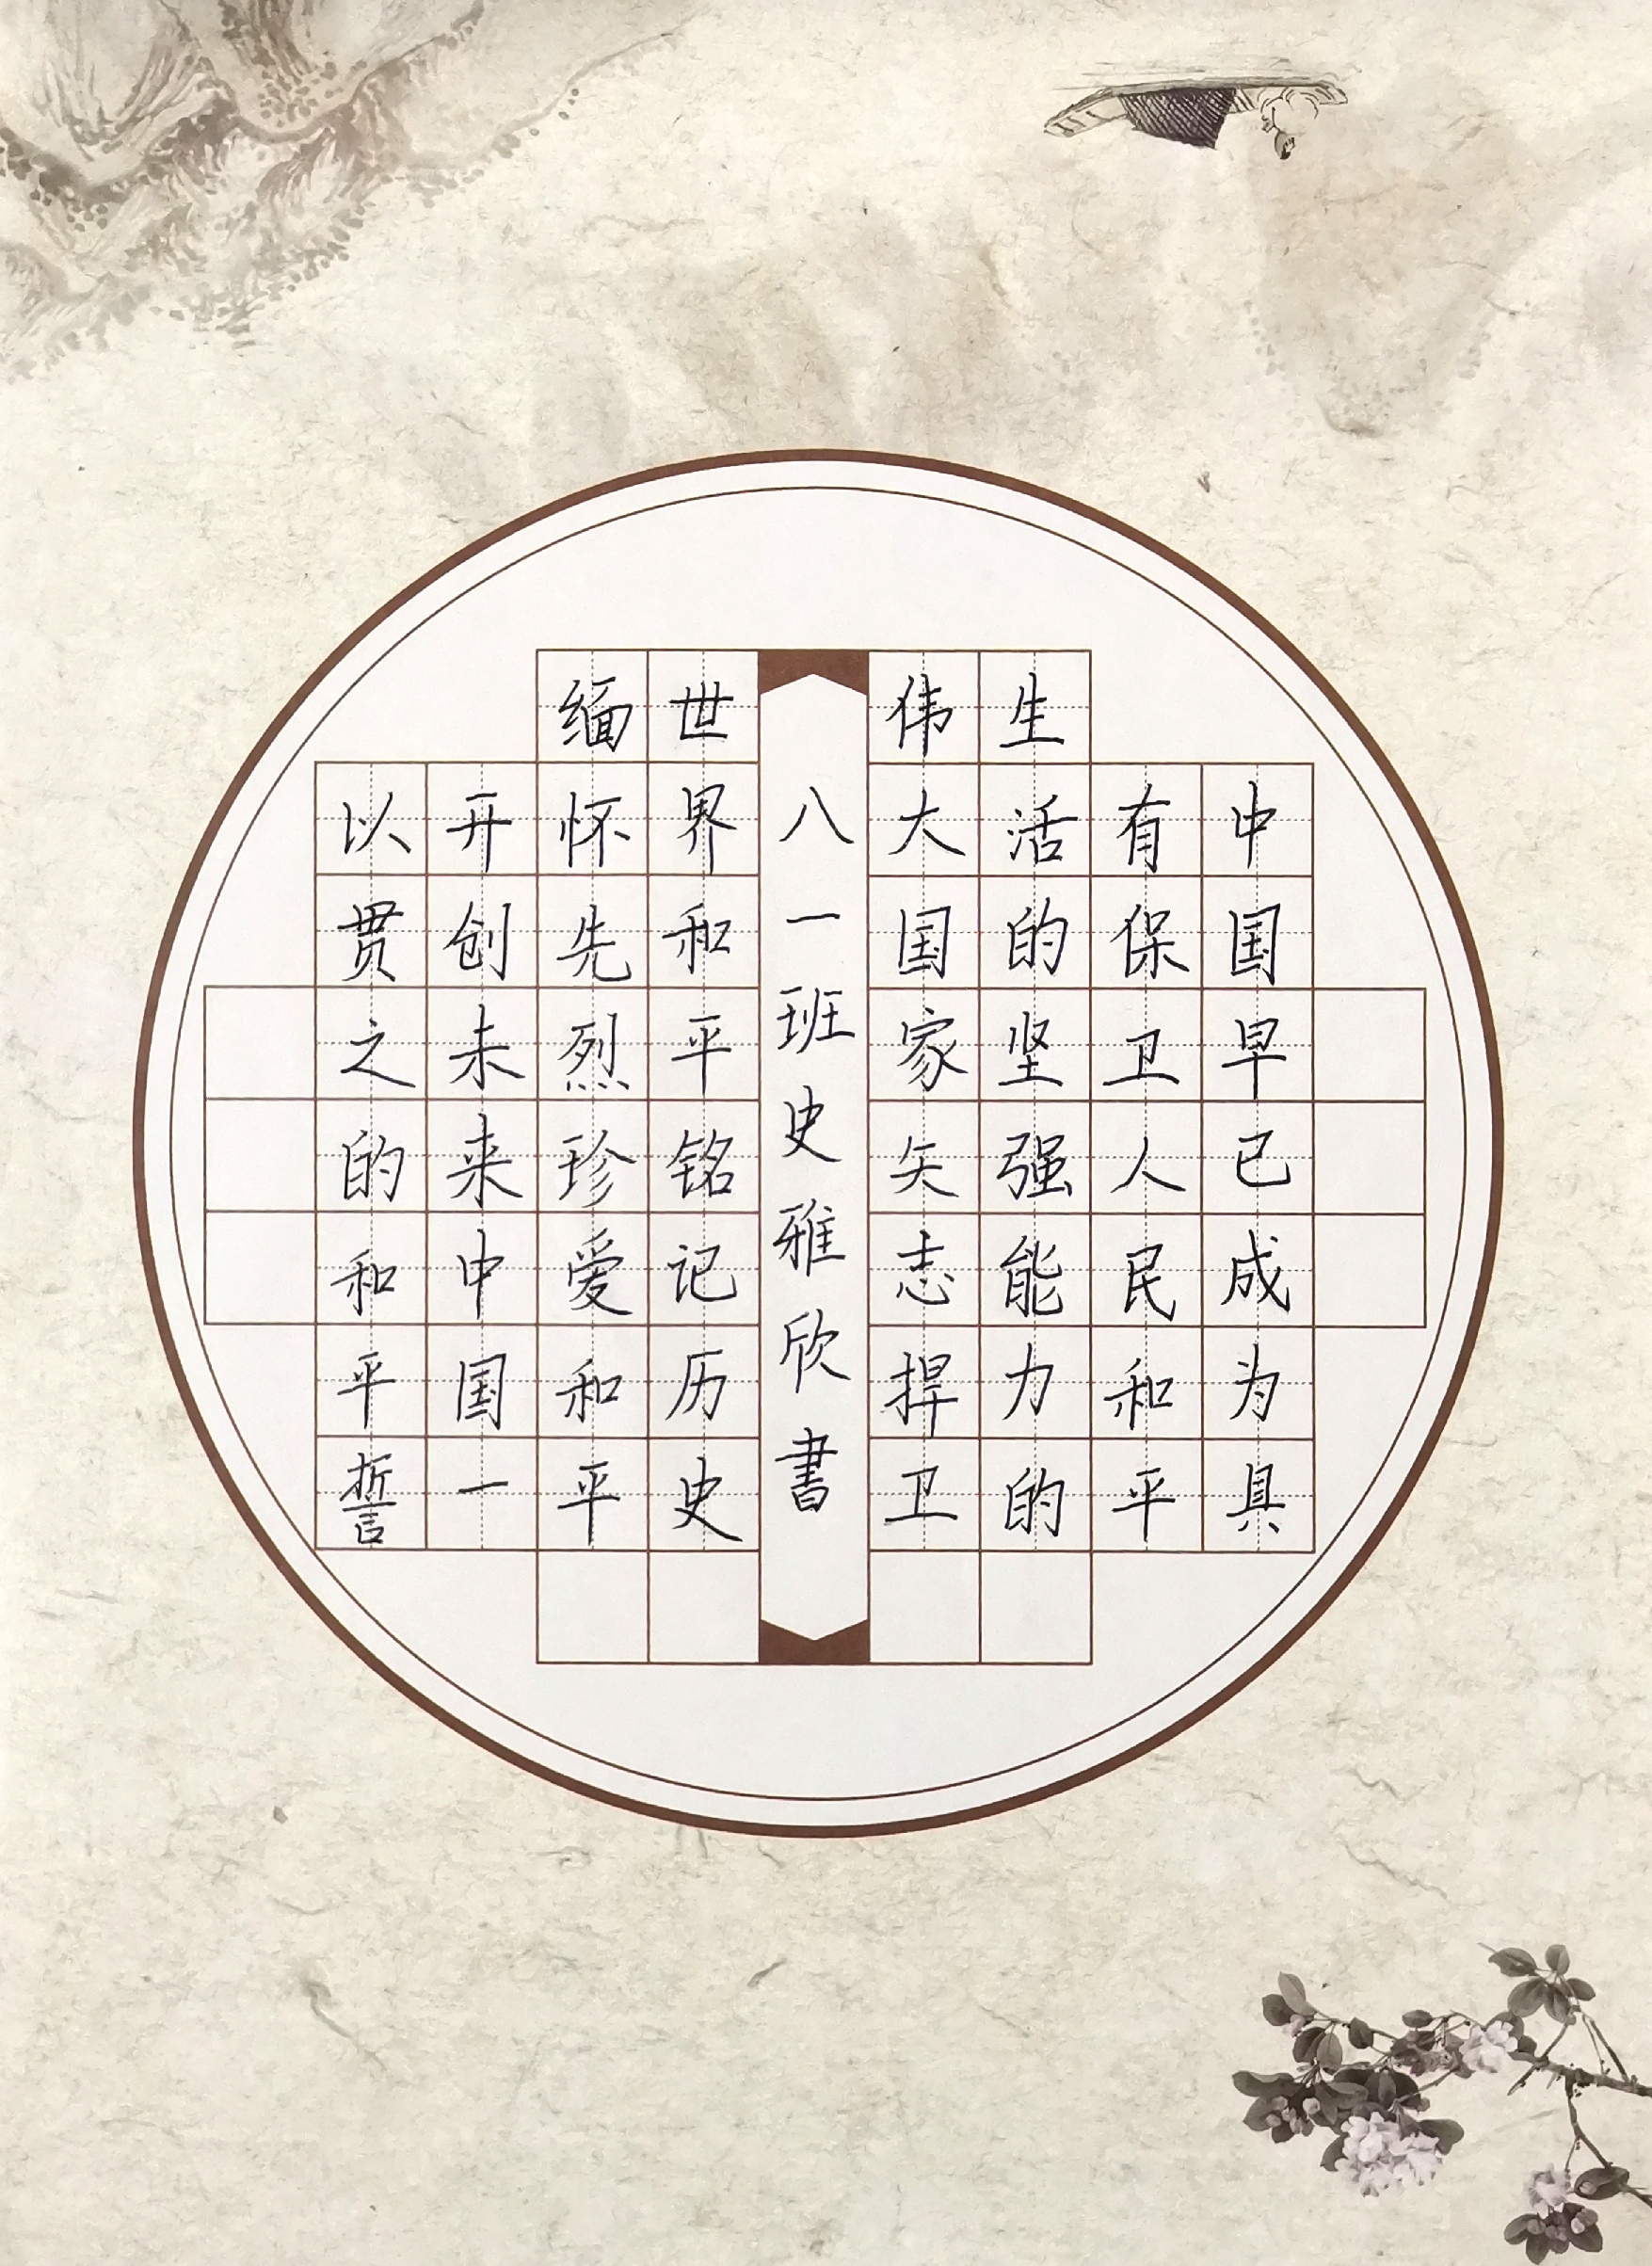 中国早已成为具
有保卫人民和平
生活的坚强能力的
伟大国家矢志捍卫
世界和平铭记历史
缅怀先烈珍爱和平
开创未来中国一
以贯之的和平誓
八一班史雅欣書